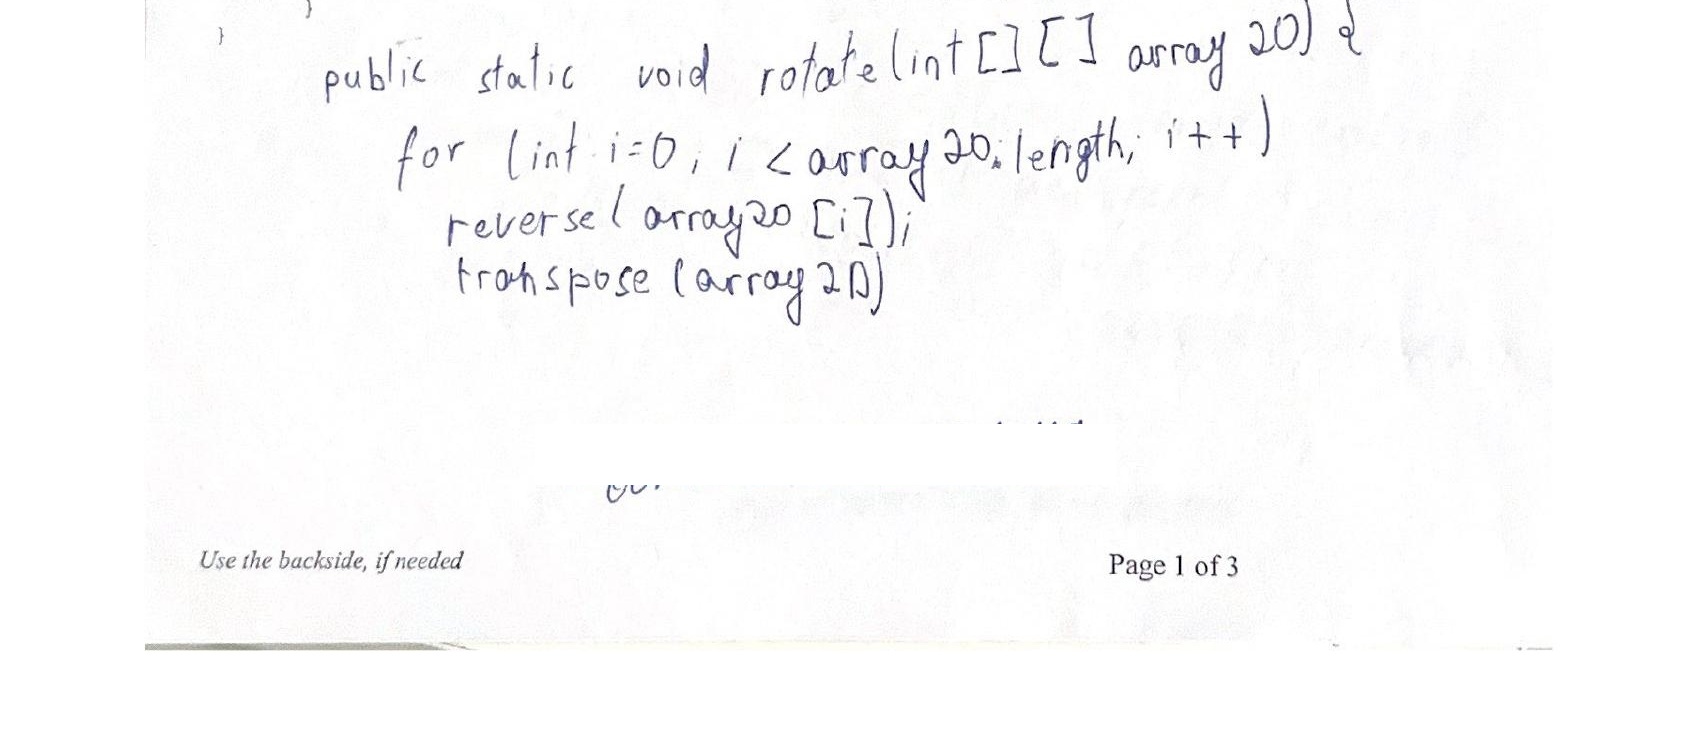 }
}
public static void rotate(int[][] array2D) {
for (int i=0; i < array2D.length; i++)
reverse(array2D[i]);
transpose(array2D)
Use the backside, if needed Page 1 of 3